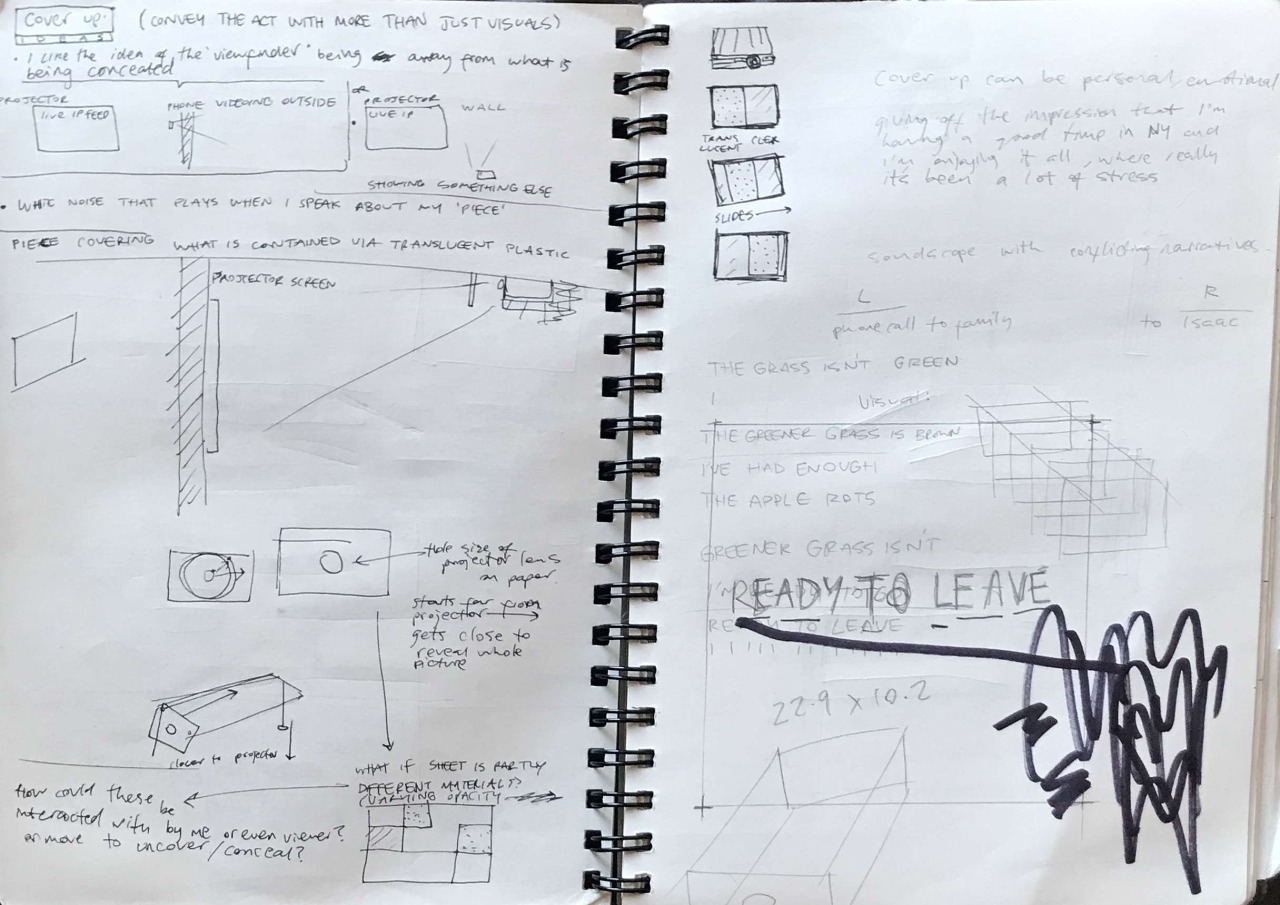 COVER UP.
IDEAS
(CONVEY THE ACT WITH MORE THAN JUST VISUALS)
• I LIKE THE IDEA OF THE 'VIEWFINDER' BEING away FROM WHAT IS
BEING CONCEALED
PROJECTOR
LIVE IP FEED
PHONE VIDEOING OUTSIDE
OR
PROJECTOR
LIVE IP
WALL
SHOWING SOMETHING ELSE
• WHITE NOISE THAT PLAYS WHEN I SPEAK ABOUT MY 'PIECE'
PIECE COVERING WHAT IS CONTAINED VIA TRANSLUCENT PLASTIC
PROJECTOR SCREEN
hole size of
projector lens
on paper.
starts far from
projector
gets close to
reveal whole
picture
closer to projector
WHAT IF SHEET IS PARTLY
DIFFERENT MATERIALS?
(VARYING OPACITY
How could these
be
interacted with by me or even viewer?
or move to uncover/conceal?
TRANS
LUCENT
CLER
SLIDES
Cover up can be personal/emotional
giving off the impression that I'm
having a good time in NY and
I'm enjoying it all, where really
it's been a lot of stress
soundscape with conflicting narratives.
L
phonecall to family
R
to Isaac
THE GRASS ISN'T GREEN
I
visual:
THE GREENER GRASS IS BROWN
I'VE HAD ENOUGH
THE APPLE ROTS
GREENER GRASS ISN'T
I'M
READY TO LEAVE
READY TO LEAVE
22.9 x 10.2